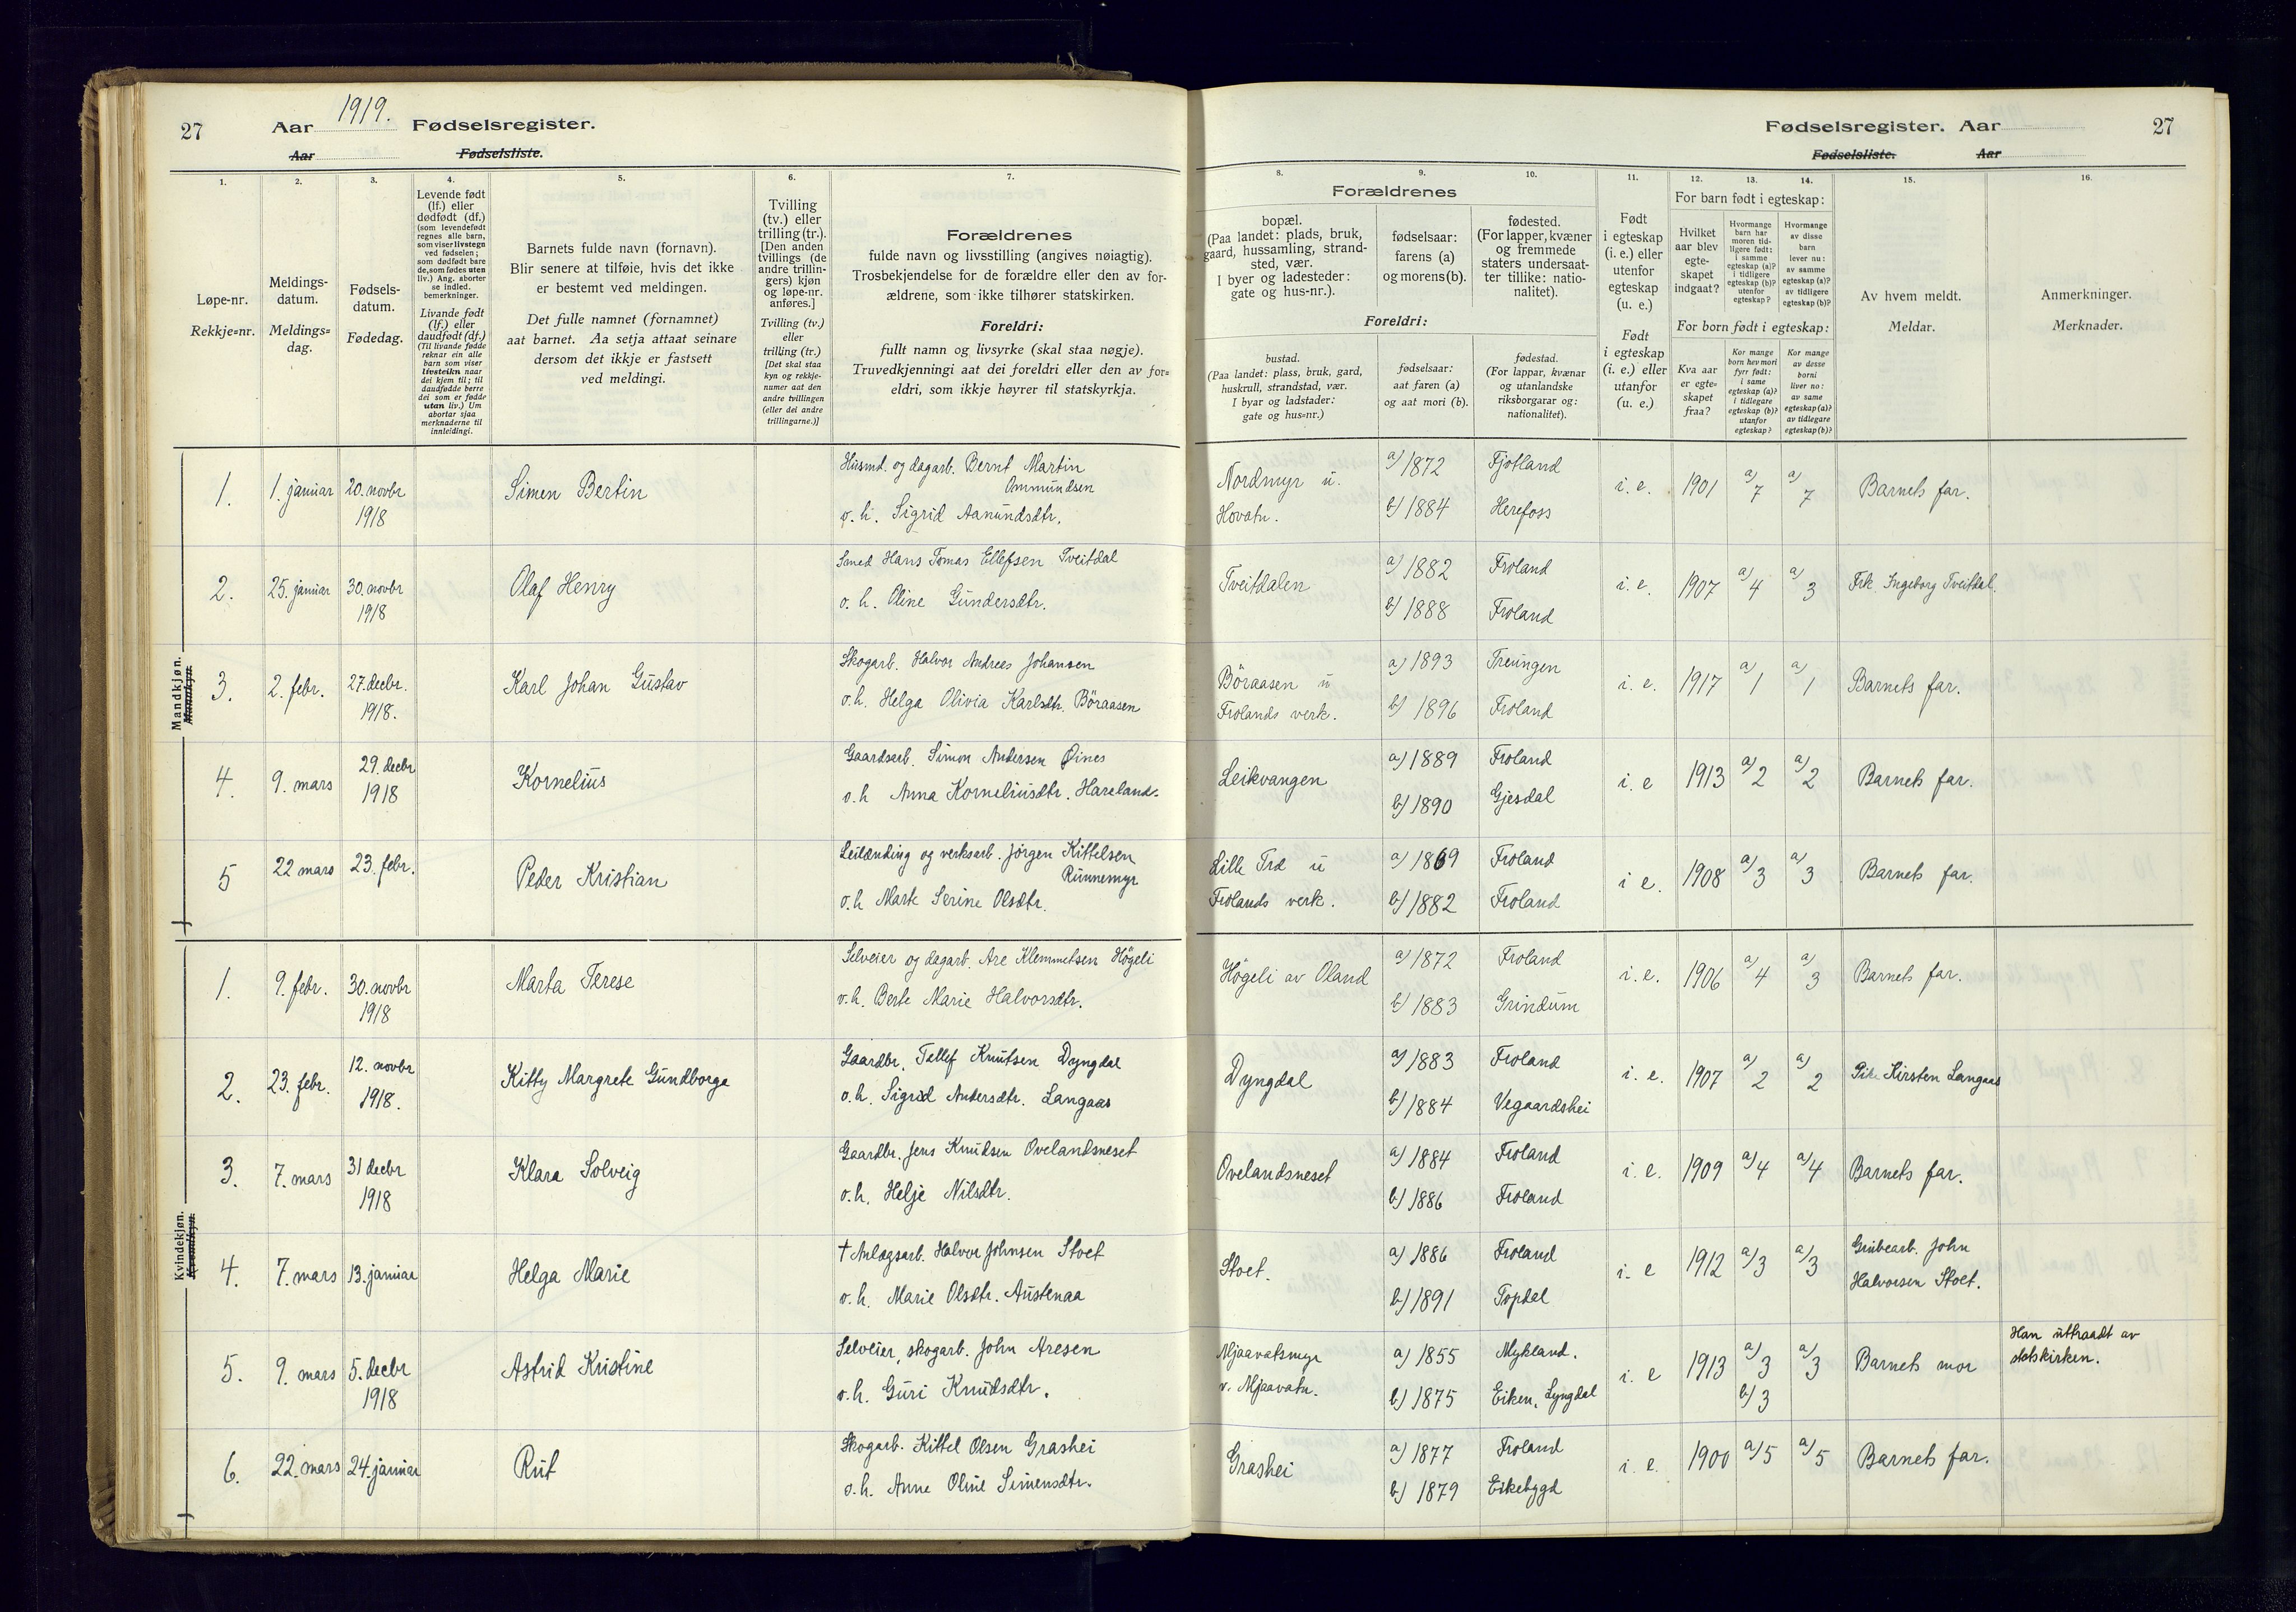 27 Aar 1919. Fødselsregister.
Aar Fødselsliste.
1.
2.
3.
4.
5.
6.
7.
Løpe-nr.
Rekkje=nr.
Meldings-
datum.
Meldings=
dag.
Fødsels-
datum.
Fødedag.
Levende født
(lf.) eller
dødfødt (df.)
(som levendefødt
regnes alle barn,
som viser livstegn
ved fødselen;
som dødfødt bare
de, som fødes uten
liv.) Ang. aborter
se indled.
bemerkninger.
Livande født
(lf.) eller
daudfødt (df.)
(Til livande fødde
reknar ein alle
barn som viser
livsteikn naar
dei kjem til; til
daudfødde berre
dei som er fødde
utan liv.) Um
abortar sjaa
merknaderne til
innleidingi.
Barnets fulde navn (fornavn).
Blir senere at tilføie, hvis det ikke
er bestemt ved meldingen.
Det fulle namnet (fornamnet)
aat barnet. Aa setja attaat seinare
dersom det ikkje er fastsett
ved meldingi.
Tvilling
(tv.) eller
trilling (tr.).
[Den anden
tvillings (de
andre trillin-
gers) kjøn
og løpe-nr.
anføres.]
Tvilling (tv.)
eller
trilling (tr.)
[Det skal staa
kyn og rekkje-
numer aat den
andre tvillingen
(eller dei andre
trillingarne.)]
Forældrenes
fulde navn og livsstilling (angives nøiagtig).
Trosbekjendelse for de forældre eller den av for-
ældrene, som ikke tilhører statskirken.
Foreldri:
fullt namn og livsyrke (skal staa nøgje).
Truvedkjenningi aat dei foreldri eller den av for=
eldri, som ikkje høyrer til statskyrkja.
Mandkjøn.
Mannkyn.
1. 1. januar 20. novbr 1918 Simen Bertin
Husmd. og dagarb. Bernt Martin
Ommundsen
o. h. Sigrid Aanundsdtr.
2. 25. januar 30. novbr 1918 Olaf Henry
Smed Hans Tomas Ellefsen Tveitdal
o. h. Oline Gundersdtr.
3. 2. febr. 27. decbr. 1918. Karl Johan Gustav
Skogarb. Halvor Andreas Johansen
o. h. Helga Olivia Karlsdtr. Böraasen
4. 9. mars 29. decbr 1918 Kornelius
Gaardsarb. Simon Andersen Öines
o. h Anna Korneliusdtr. Hareland.
5 22 mars 23. febr. Peder Kristian
Leilænding og verksarb. Jörgen Kittelsen
Runnemyr
o. h Marte Serine Olsdtr.
Kvindekjøn.
Kvendkyn.
1. 9. febr. 30. novbr 1918 Marta Terese
Selveier og dagarb. Are Klemmetsen Högeli
o. h. Berte Marie Halvorsdtr.
2. 23. febr. 12. novbr 1918. Kitty Margrete Gundborga
Gaardbr. Tellef Knutsen Dyngdal
o. h. Sigrid Andersdtr. Langaas
3. 7. mars 31 decbr 1918 Klara Solveig
Gaardbr. Jens Knudsen Ovelandsneset
o. h. Helje Nilsdtr.
4. 7. mars 13. januar Helga Marie
† Anlægsarb. Halvor Johnsen Stoet
o. h. Marie Olsdtr. Austenaa
5. 9. mars 5. decbr 1918 Astrid Kristine
Selveier, skogarb. John Aresen
o. h. Guri Knudsdtr.
6. 22. mars 24. januar Rut
Skogarb. Kittel Olsen Grashei
o. h. Anne Oline Simensdtr.
Fødselsregister. Aar 27
Fødselsliste. Aar
8.
9.
10.
11.
12.
13.
14.
15.
16.
Forældrenes
bopæl.
(Paa landet: plads, bruk,
gaard, hussamling, strand-
sted, vær.
I byer og ladesteder:
gate og hus-nr.).
fødselsaar:
farens (a)
og morens (b).
fødested.
(For lapper, kvæner
og fremmede
staters undersaat-
ter tillike: natio-
nalitet).
Foreldri:
bustad.
(Paa landet: plass, bruk, gard,
huskrull, strandstad, vær.
I byar og ladstader:
gate og hus=nr.)
fødselsaar:
aat faren (a)
og aat mori (b).
fødestad.
(For lappar, kvænar
og utanlandske
riksborgarar og:
nationalitet).
Født
i egteskap
(i. e.) eller
utenfor
egteskap
(u. e.)
Født
i egteskap
(i. e.) eller
utanfor
(u. e.)
For barn født i egteskap:
Hvilket
aar blev
egte-
skapet
indgaat?
Hvormange
barn har
moren tid-
ligere født:
i samme
egteskap (a)?
i tidligere
egteskap (b)?
utenfor
egteskap?
Hvormange
av disse
barn
lever nu:
av samme
egteskap (a)?
av tidligere
egteskap (b)?
For born født i egteskap:
Kva aar
er egte=
skapet
fraa?
Kor mange
born hev mori
fyrr født:
i same
egteskap (a)?
i tidlegare
egteskap (b)?
utanfor
egteskap?
Kor mange
av desse
borni
liver no:
av same
egteskap (a)?
av tidlegare
egteskap (b)?
Av hvem meldt.
Meldar.
Anmerkninger.
Merknader.
Nordmyr u.
Hovatn.
a) 1872 Fjotland
b) 1884 Herefoss
i. e. 1901 a) 7 a) 7 Barnets far.
Tveitdalen
a) 1882 Froland
b) 1888 Froland
i. e. 1907 a) 4 a) 3 Frk. Ingeborg Tveitdal.
Böraasen u
Frolands verk.
a) 1893 Treungen
b) 1896 Froland
i. e. 1917 a) 1 a) 1 Barnets far.
Leikvangen
a) 1889 Froland
b) 1890 Gjesdal
i. e 1913 a) 2 a) 2 Barnets far.
Lille Trd u
Frolands verk.
a) 1869 Froland
b) 1882 Froland
i e. 1908 a) 3 a) 3 Barnets far.
Högeli av Oland
a) 1872 Froland
b) 1883 Grindum
i. e. 1906 a) 4 a) 3 Barnets far.
Dyngdal
a) 1883 Froland
b) 1884 Vegaardshei
i. e. 1907 a) 2 a) 2 Kirsten Langaas
Ovelandsneset
a) 1884 Froland
b) 1886 Froland
i. e. 1909 a) 4 a) 4 Barnets far.
Stoet.
a) 1886 Froland
b) 1891 Topdal
i. e 1912 a) 3 a) 3 Grubearb. John
Halvorsen Stoet.
Mjaavatsmyr
v. Mjaavatn.
a) 1855 Mykland.
b) 1875 Eiken, Lyngdal
i. e 1913 a) 3 b) 3 a) 3 Barnets mor
Han uttraadt av
statskirken.
Grashei
a) 1877 Froland
b) 1879 Eikebygd
i. e. 1900 a) 5 a) 5 Barnets far.